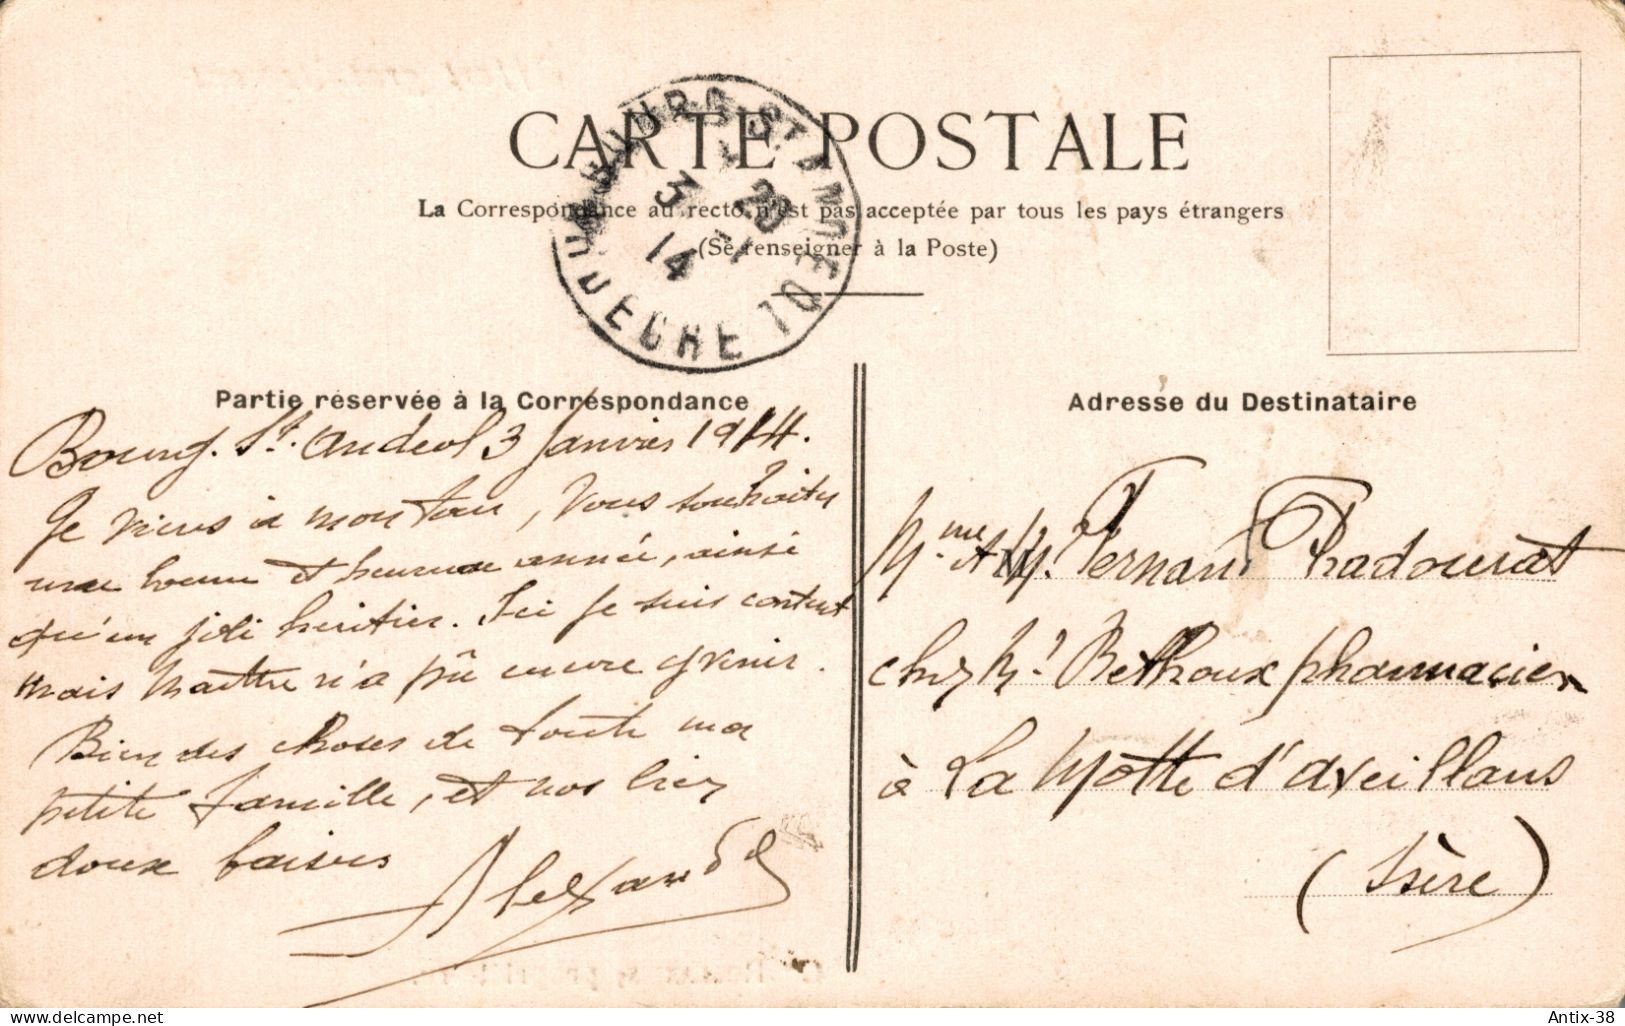 CARTE POSTALE
La Correspondance au recto n'est pas acceptée par tous les pays étrangers
(Se renseigner à la Poste)
BOURG-ST-ANDEOL
ARDECHE
3 - 1
14
Partie réservée à la Correspondance
Bourg. St. Andeol 3 Janvier 1914.
Je viens à mon tour, vous souhaiter
une bonne et heureuse année, ainsi
qu'un joli héritier. Ici je suis content
mais Maître n'a pû encore y venir.
Bien des choses de toute ma
petite famille, et nos bien
doux baisers
Alexandre
Adresse du Destinataire
Mme & M. Fernand Pradourat
chez Mr Bethoux pharmacien
à La Motte d'aveillans
(Isère)
delcampe.net
Antix-38